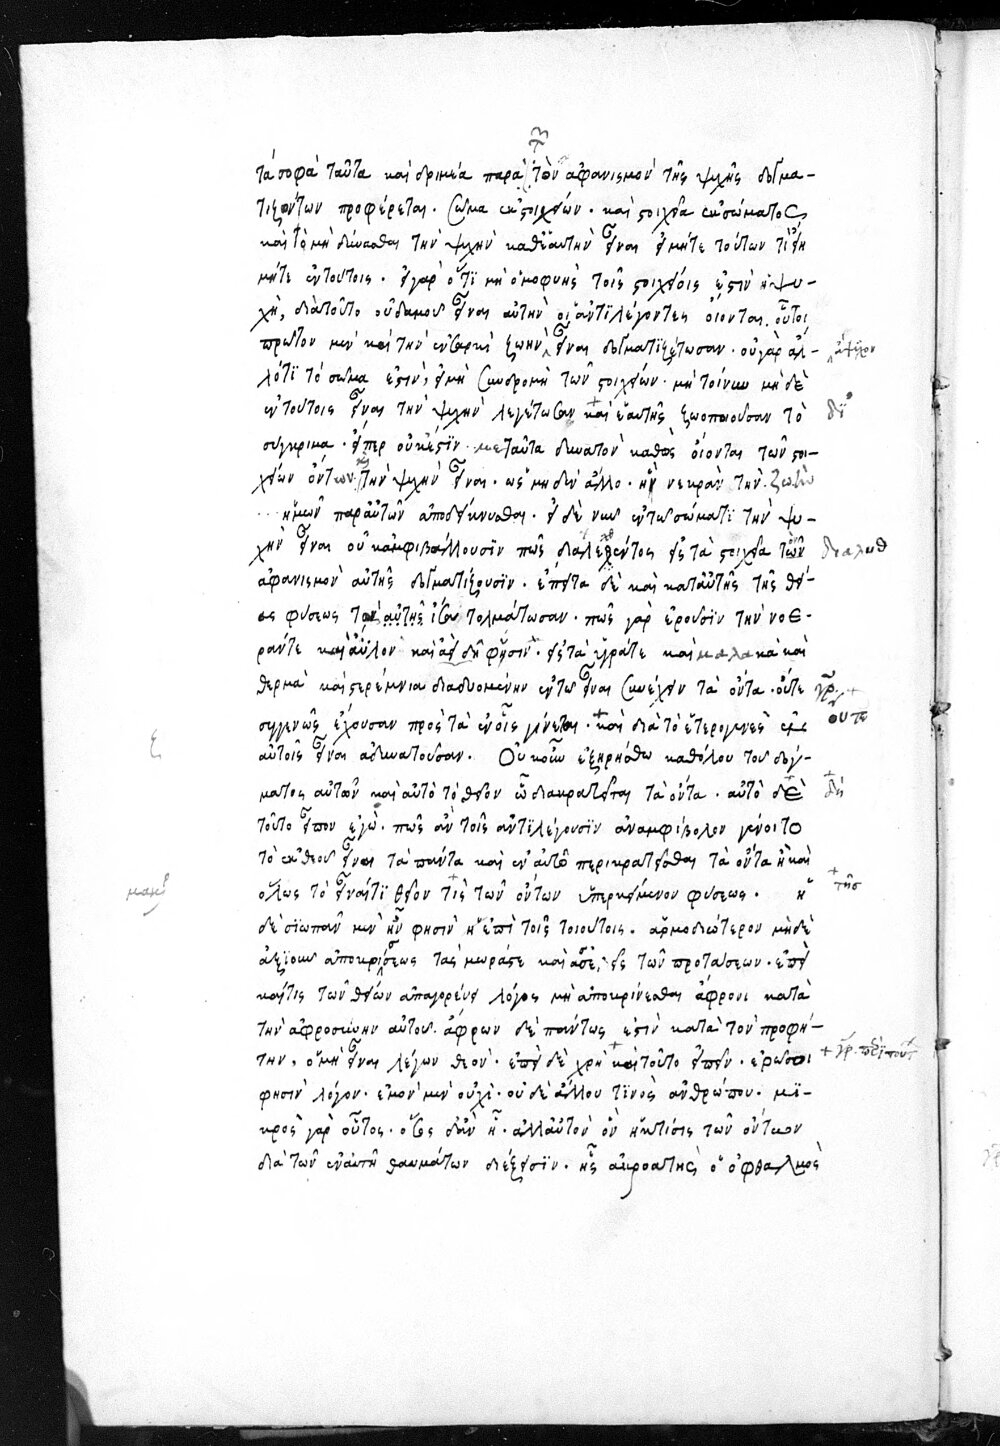 τὰ σοφὰ ταῦτα καὶ δριμέα παρὰ τὸν ἀφανισμὸν τῆς ψυχῆς δογμα-
τιζόντων προφέρεται. σῶμα ἐκ στοιχείων. καὶ στοιχεῖα ἐκ σώματος
καὶ τὸ μὴ δύνασθαι τὴν ψυχὴν καθἑαυτὴν εἶναι εἰ μήτε τούτων τι εἴη
μήτε ἐν τούτοις. εἰ γὰρ ὅτι μὴ ὁμοφυὴς τοῖς στοιχείοις ἐστὶν ἡ ψυ-
χὴ, διὰ τοῦτο οὐδαμοῦ εἶναι αὐτὴν οἱ ἀντιλέγοντες οἴονται. οὗτοι
πρῶτον μὲν καὶ τὴν ἐν σαρκὶ ζωὴν εἶναι δογματιζέτωσαν. οὐ γὰρ ἀλ-
λό τι τὸ σῶμα ἐστὶν, εἰ μὴ συνδρομὴ τῶν στοιχείων. μὴ τοίνυν μηδὲ
ἐν τούτοις εἶναι τὴν ψυχὴν λεγέτωσαν καὶ ἑαυτῆς ζωοποιοῦσαν τὸ
σύγκριμα. εἴπερ οὐκ ἔστιν μετ ταῦτα δυνατὸν καθὼς οἴονται τῶν στοι-
χείων ὄντων τὴν ψυχὴν εἶναι. ὡς μηδὲν ἄλλο. ἢ νεκρὰν τὴν ζωὴν
ἡμῶν παρ αὐτῶν ἀποδείκνυσθαι. εἰ δὲ νῦν ἐν τῷ σώματι τὴν ψυ-
χὴν εἶναι οὐκ ἀμφιβάλλουσιν πῶς διαλεχθέντος εἰς τὰ στοιχεῖα τὸν
ἀφανισμὸν αὐτῆς δογματίζουσιν. ἔπειτα δὲ καὶ κατ αὐτῆς τῆς θεί-
ας φύσεως τὰ αὐτῆς ἴσα τολμάτωσαν. πῶς γὰρ ἐροῦσιν τὴν νοε-
ράν τε καὶ ἄϋλον καὶ ἀειδῆ φύσιν. εἰς τὰ ὑγρά τε καὶ μαλακὰ καὶ
θερμὰ καὶ στερέμνια διαδυομένην ἐν τῷ εἶναι συνέχειν τὰ ὄντα. οὔτε
συγγενῶς ἔχουσαν πρὸς τὰ ἐν οἷς γίνεται. καὶ διὰ τὸ ἑτερογενὲς ἐν
αὐτοῖς εἶναι ἀδυνατοῦσαν. Οὐκοῦν ἐξῃρήσθω καθόλου τοῦ δόγ-
ματος αὐτῶν καὶ αὐτὸ τὸ θεῖον ᾧ διακρατεῖται τὰ ὄντα. αὐτὸ δὲ
τοῦτο εἶπον ἐγὼ. πῶς ἂν τοῖς ἀντιλέγουσιν ἀναμφίβολον γένοιτο
τὸ ἐκ θεοῦ εἶναι τὰ πάντα καὶ ἐν αὐτῷ περικρατεῖσθαι τὰ ὄντα ἢ καὶ
ὅλως τὸ εἶναί τι θεῖον τις τῶν ὄντων ὑπερκείμενον φύσεως. ἡ
δὲ σιωπᾶν μὲν ἦν φησὶν ἡ ἐπὶ τοῖς τοιούτοις. ἁρμοδιώτερον μηδὲ
ἀξίους ἀποκρίσεως τὰς μωράς τε καὶ ἀσεβεῖς τῶν προτάσεων. ἐπεὶ
καί τις τῶν θείων ἀπαγορεύει λόγος μὴ ἀποκρίνεσθαι ἄφρονι κατὰ
τὴν ἀφροσύνην αὐτοῦ. ἄφρων δὲ πάντως ἐστὶν κατὰ τὸν προφή-
την, ὁ μὴ εἶναι λέγων θεόν. ἐπεὶ δὲ χρὴ καὶ τοῦτο εἰπεῖν. ἐρῶ σοι
φησὶν λόγον. ἐμὸν μὲν οὐχὶ. οὐδὲ ἄλλου τινὸς ἀνθρώπου. μι-
κρὸς γὰρ οὗτος. ὅστις δἂν ᾖ. ἀλλ αὐτὸν ὃν ἡ κτίσις τῶν ὄντων
διὰ τῶν ἐν αὐτῇ θαυμάτων διέξεισιν. ἧς ἀκροατὴς ὁ ὀφθαλμὸς
οὔτε
δὴ
τῆς